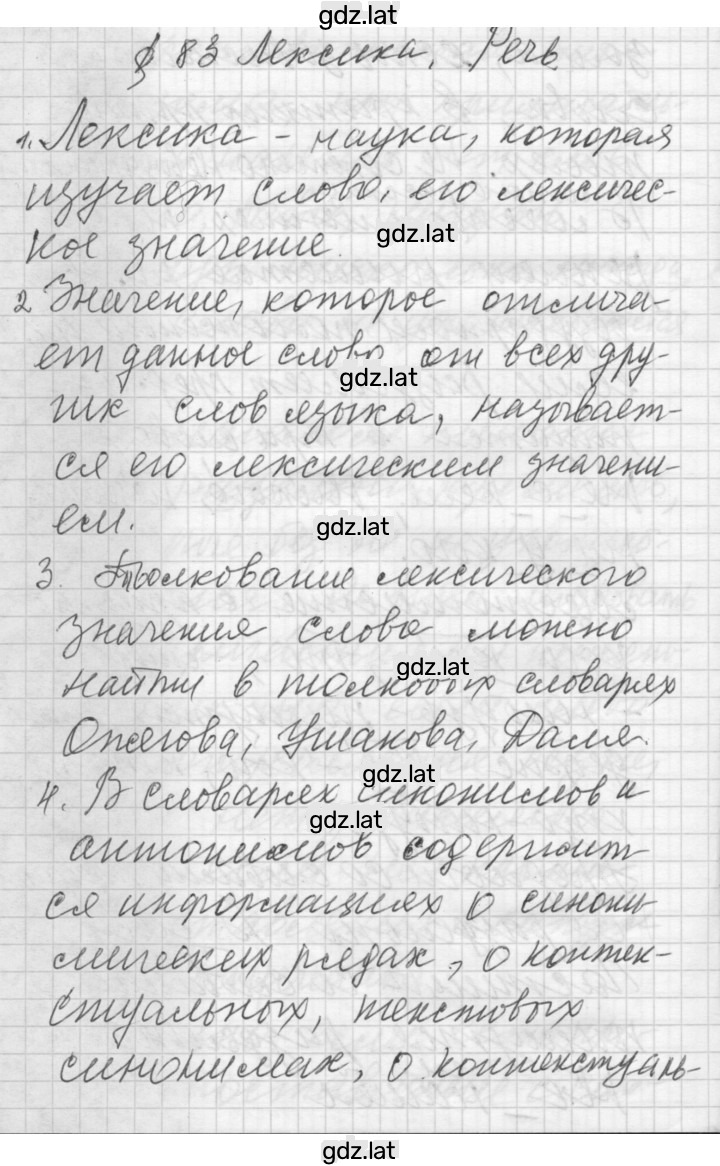 gdz.lat
§ 83 Лексика. Речь
1. Лексика - наука, которая
изучает слово, его лексичес-
кое значение.
gdz.lat
2 Значение, которое отлича-
ет данное слово от всех дру-
gdz.lat
гих слов языка, называет-
ся его лексическим значени-
ем.
gdz.lat
3. Толкование лексического
значения слова можно
gdz.lat
найти в толковых словарях
Ожегова, Ушакова, Даля.
gdz.lat
4. В словарях синонимов и
gdz.lat
антонимов содержит-
ся информациях о синони-
мических рядах, о контек-
стуальных, текстовых
синонимах, о контекстуаль-
gdz.lat